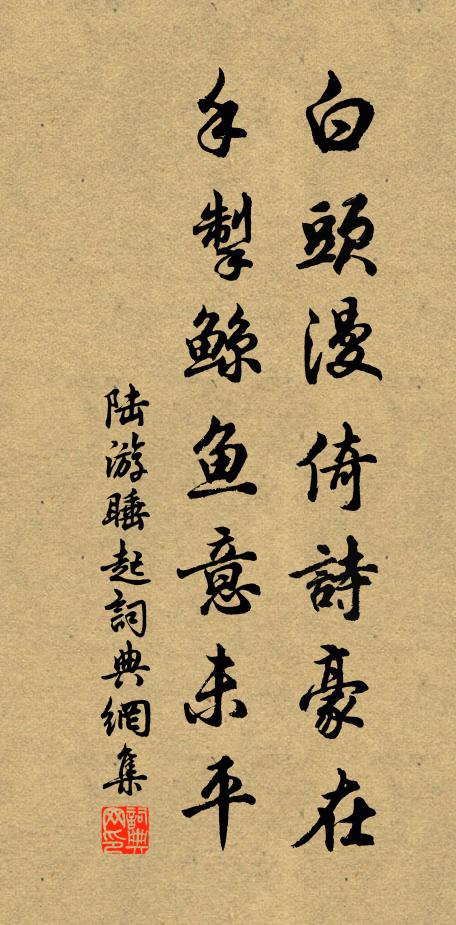 白頭漫倚詩豪在
手掣鲸鱼意未平
陆游睡起詞典網集
詞典网印